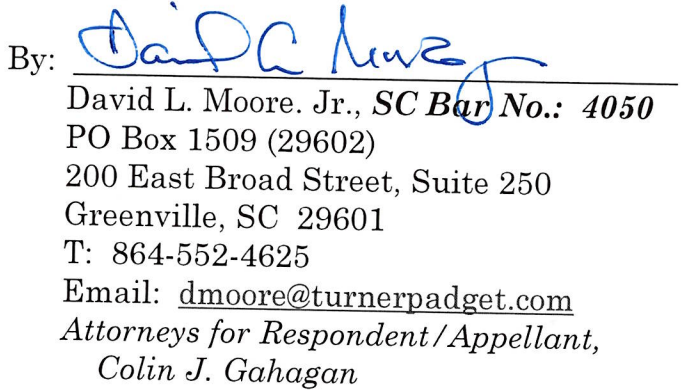 By:
David L. Moore. Jr., SC Bar No.: 4050
PO Box 1509 (29602)
200 East Broad Street, Suite 250
Greenville, SC 29601
T: 864-552-4625
Email: dmoore@turnerpadget.com
Attorneys for Respondent/Appellant,
Colin J. Gahagan